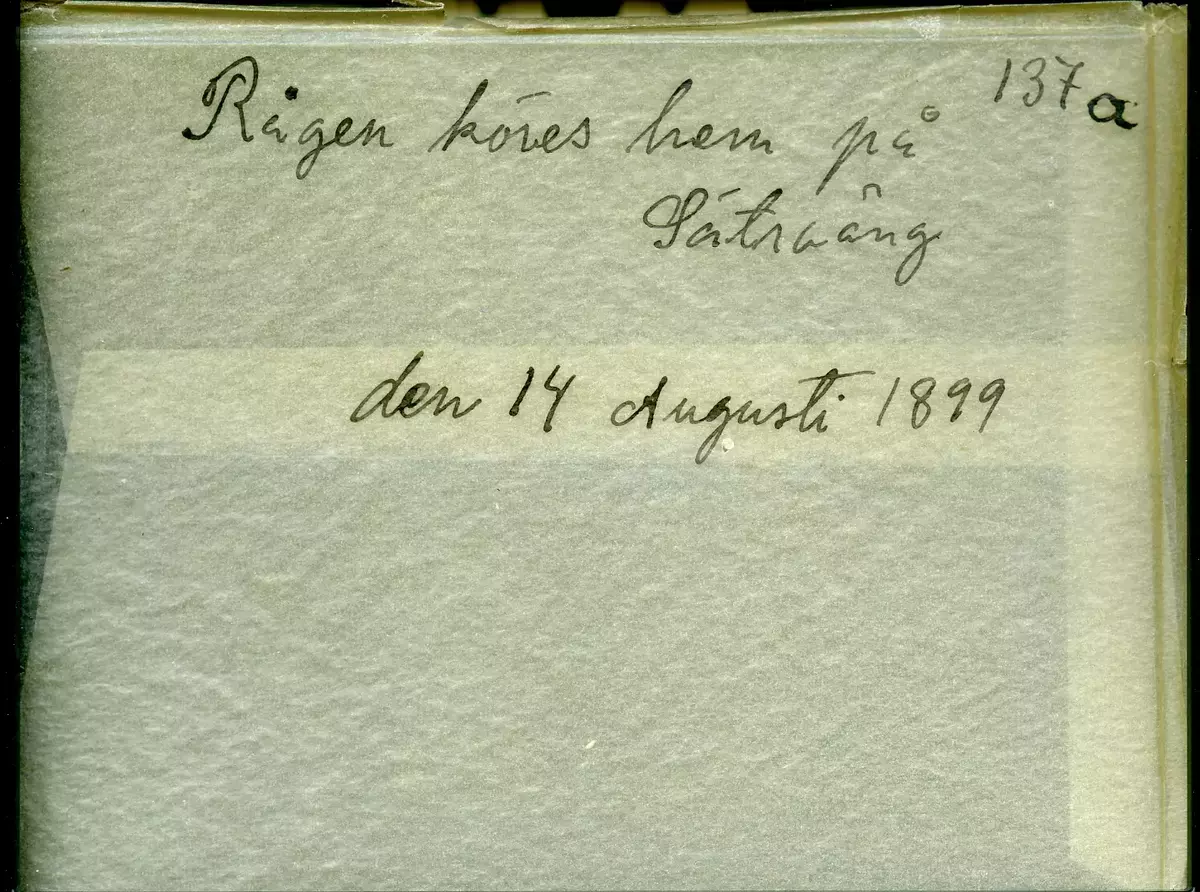 137 a
Rågen köres hem på
Sätra äng
den 14 Augusti 1899